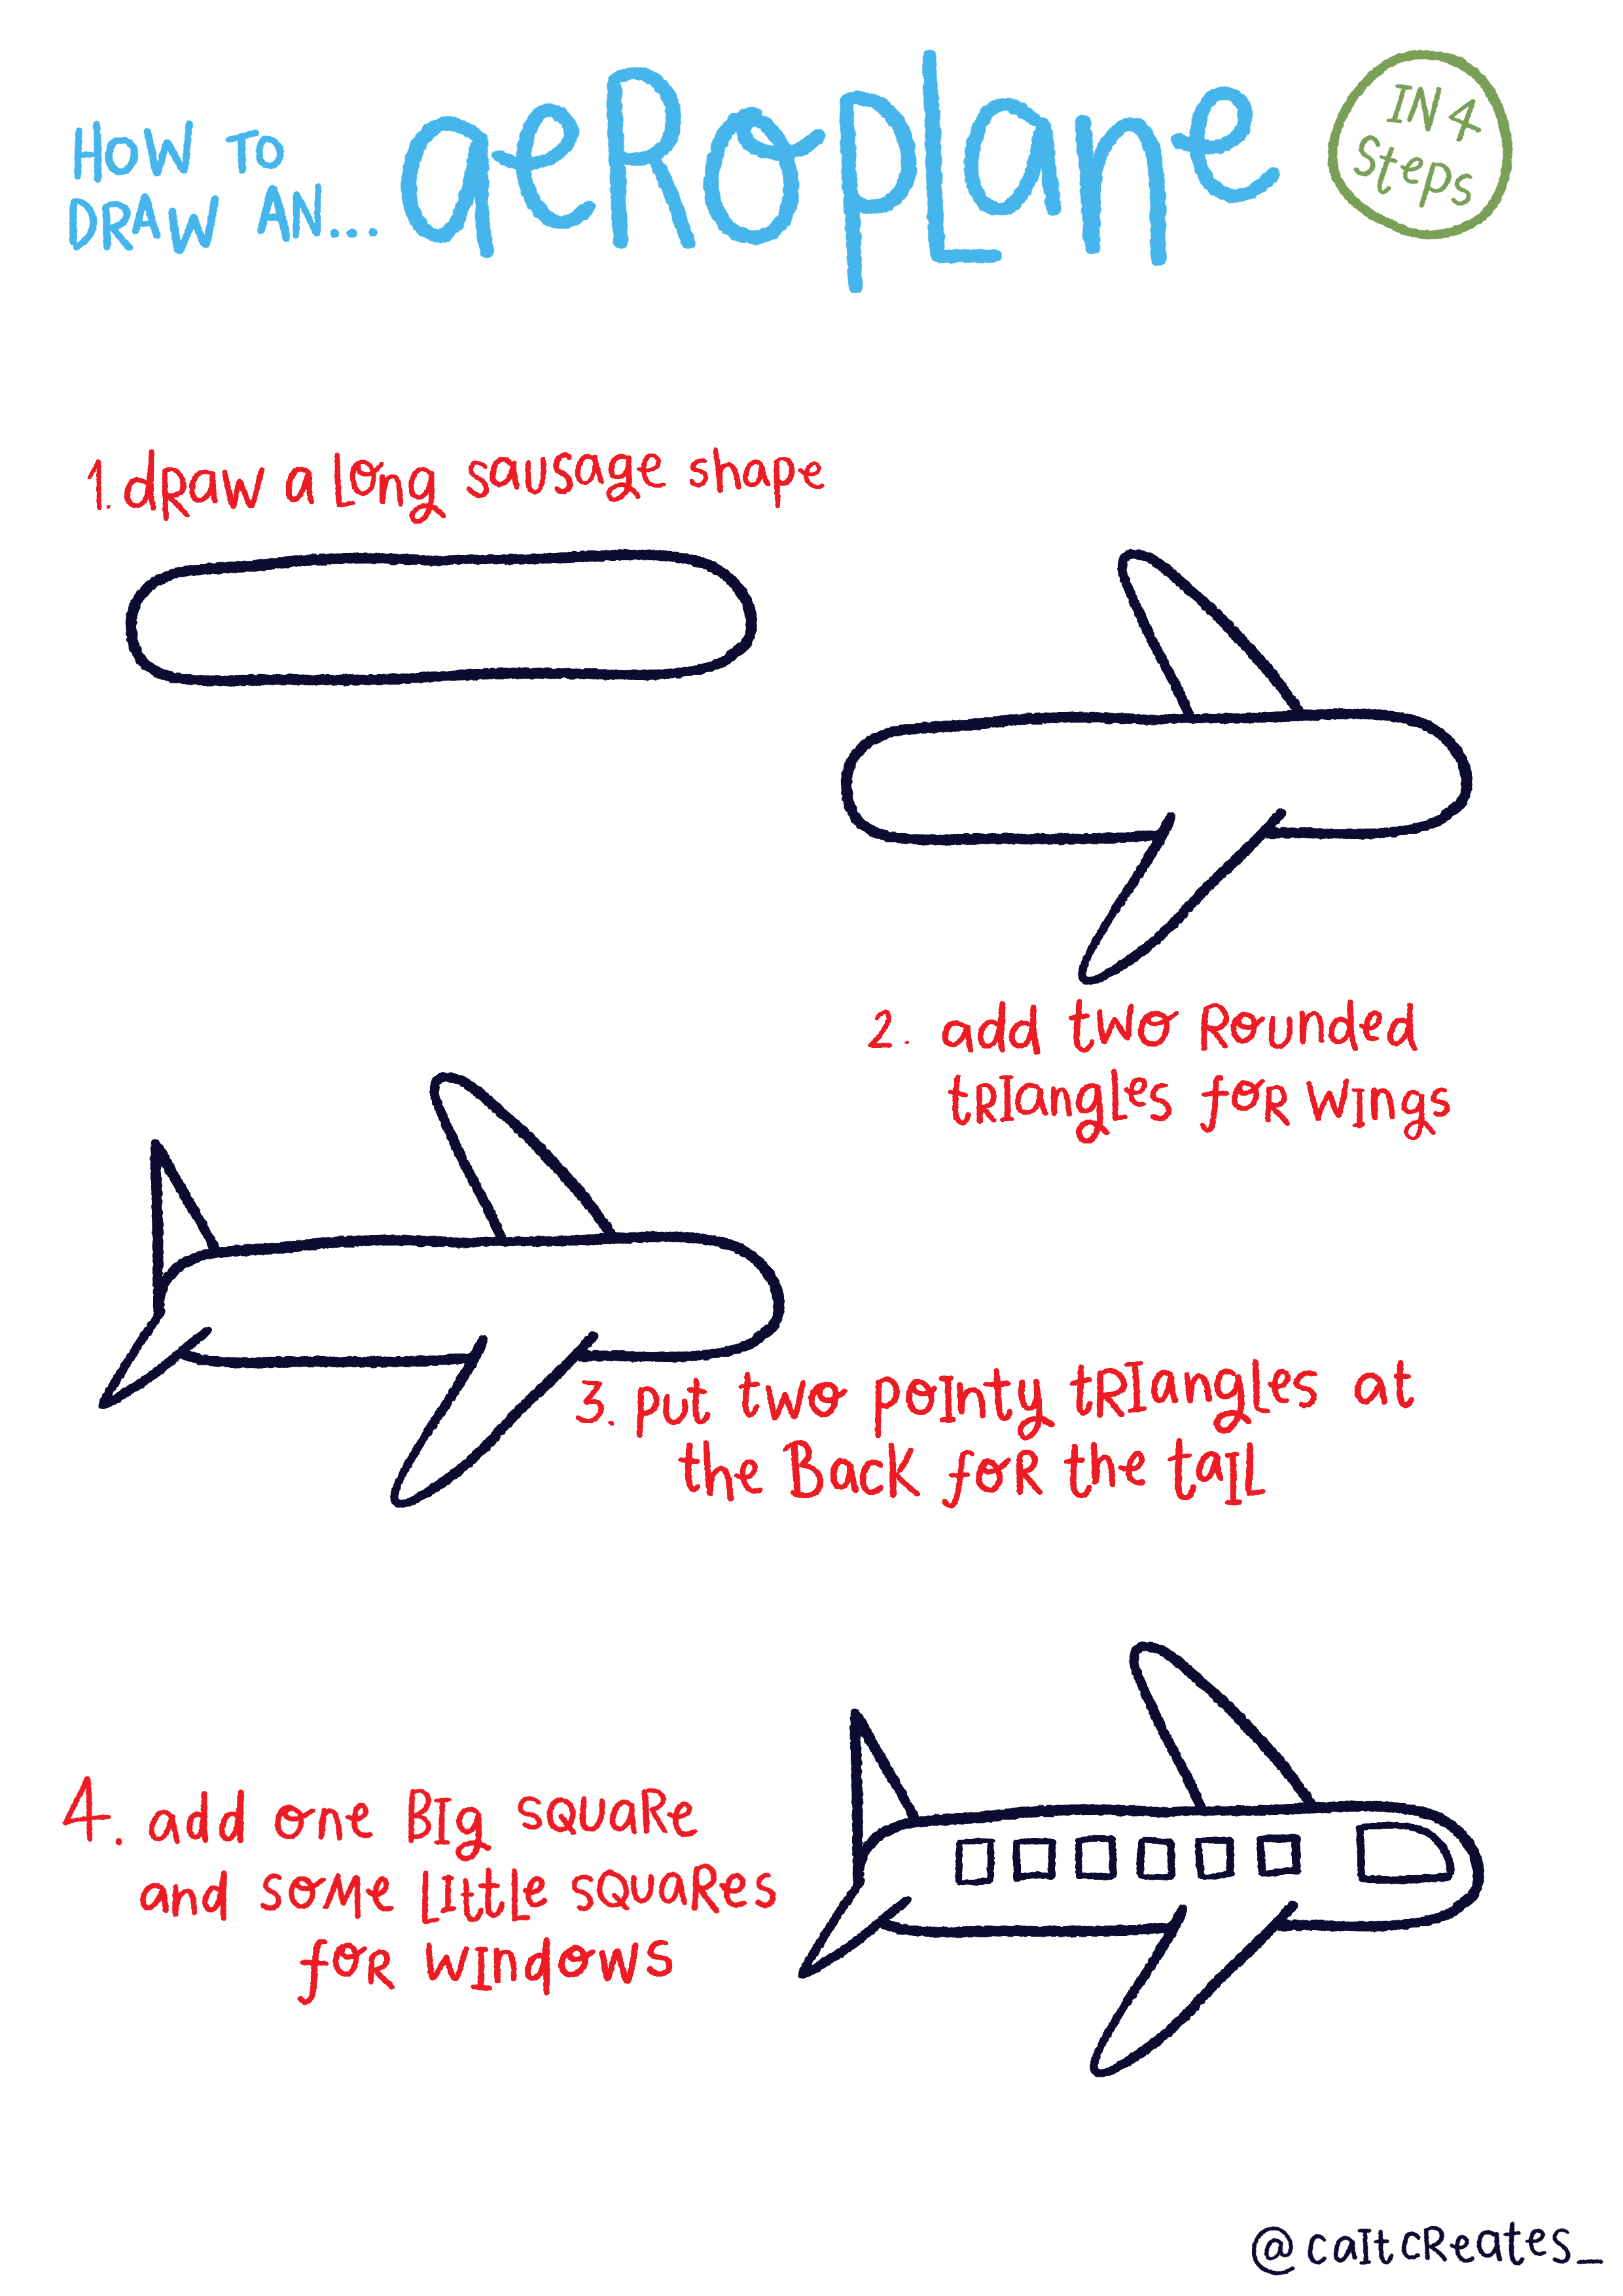 HOW TO
DRAW AN...
aeRoplane
IN 4
Steps
1. dRaw a long sausage shape
2. add two Rounded
tRIangles foR wIngs
3. put two poInty tRIangles at
the Back foR the taIL
4. add one BIg squaRe
and soMe LIttLe squaRes
foR wIndows
@caItcReates_